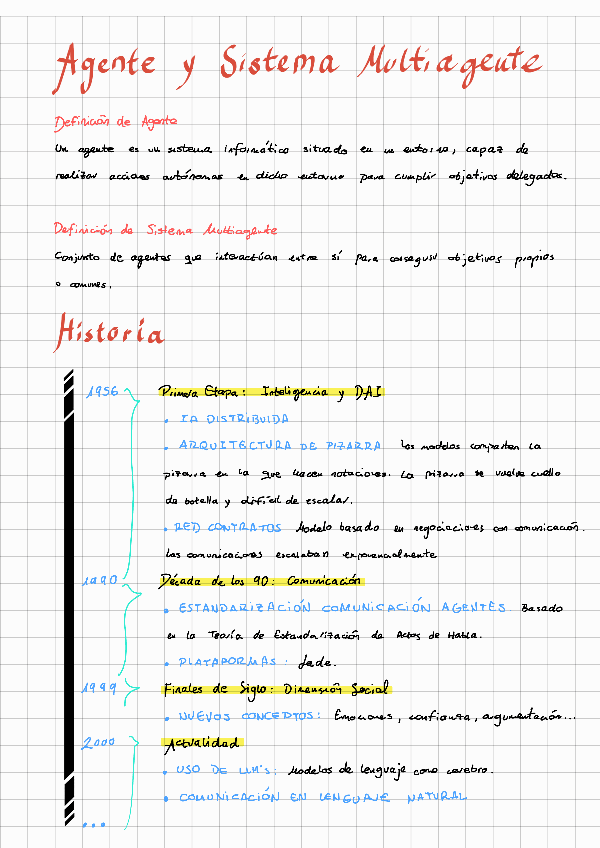 Agente y Sistema Multiagente
Definición de Agente
Un agente es un sistema informático situado en un entorno, capaz de
realizar acciones autónomas en dicho entorno para cumplir objetivos delegados.
Definición de Sistema Multiagente
Conjunto de agentes que interactúan entre sí para conseguir objetivos propios
o comunes.
Historia
1956 Primera Etapa: Inteligencia y DAI
• IA DISTRIBUIDA
• ARQUITECTURA DE PIZARRA Los modelos comparten la
pizarra en la que hacen notaciones. La pizarra se vuelve cuello
de botella y difícil de escalar.
• RED CONTRATOS Modelo basado en negociaciones con comunicación.
Las comunicaciones escalaban exponencialmente
1990 Década de los 90: Comunicación
• ESTANDARIZACIÓN COMUNICACIÓN AGENTES Basado
en la Teoría de Estandarización de Actos de Habla.
• PLATAFORMAS: Jade.
1999 Finales de Siglo: Dimensión Social
• NUEVOS CONCEPTOS: Emociones, confianza, argumentación...
2000 Actualidad
• USO DE LLM's: Modelos de lenguaje como cerebro.
• COMUNICACIÓN EN LENGUAJE NATURAL
...